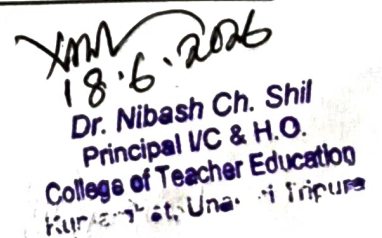 18.6.2026
Dr. Nibash Ch. Shil
Principal I/C & H.O.
College of Teacher Education
Tripura